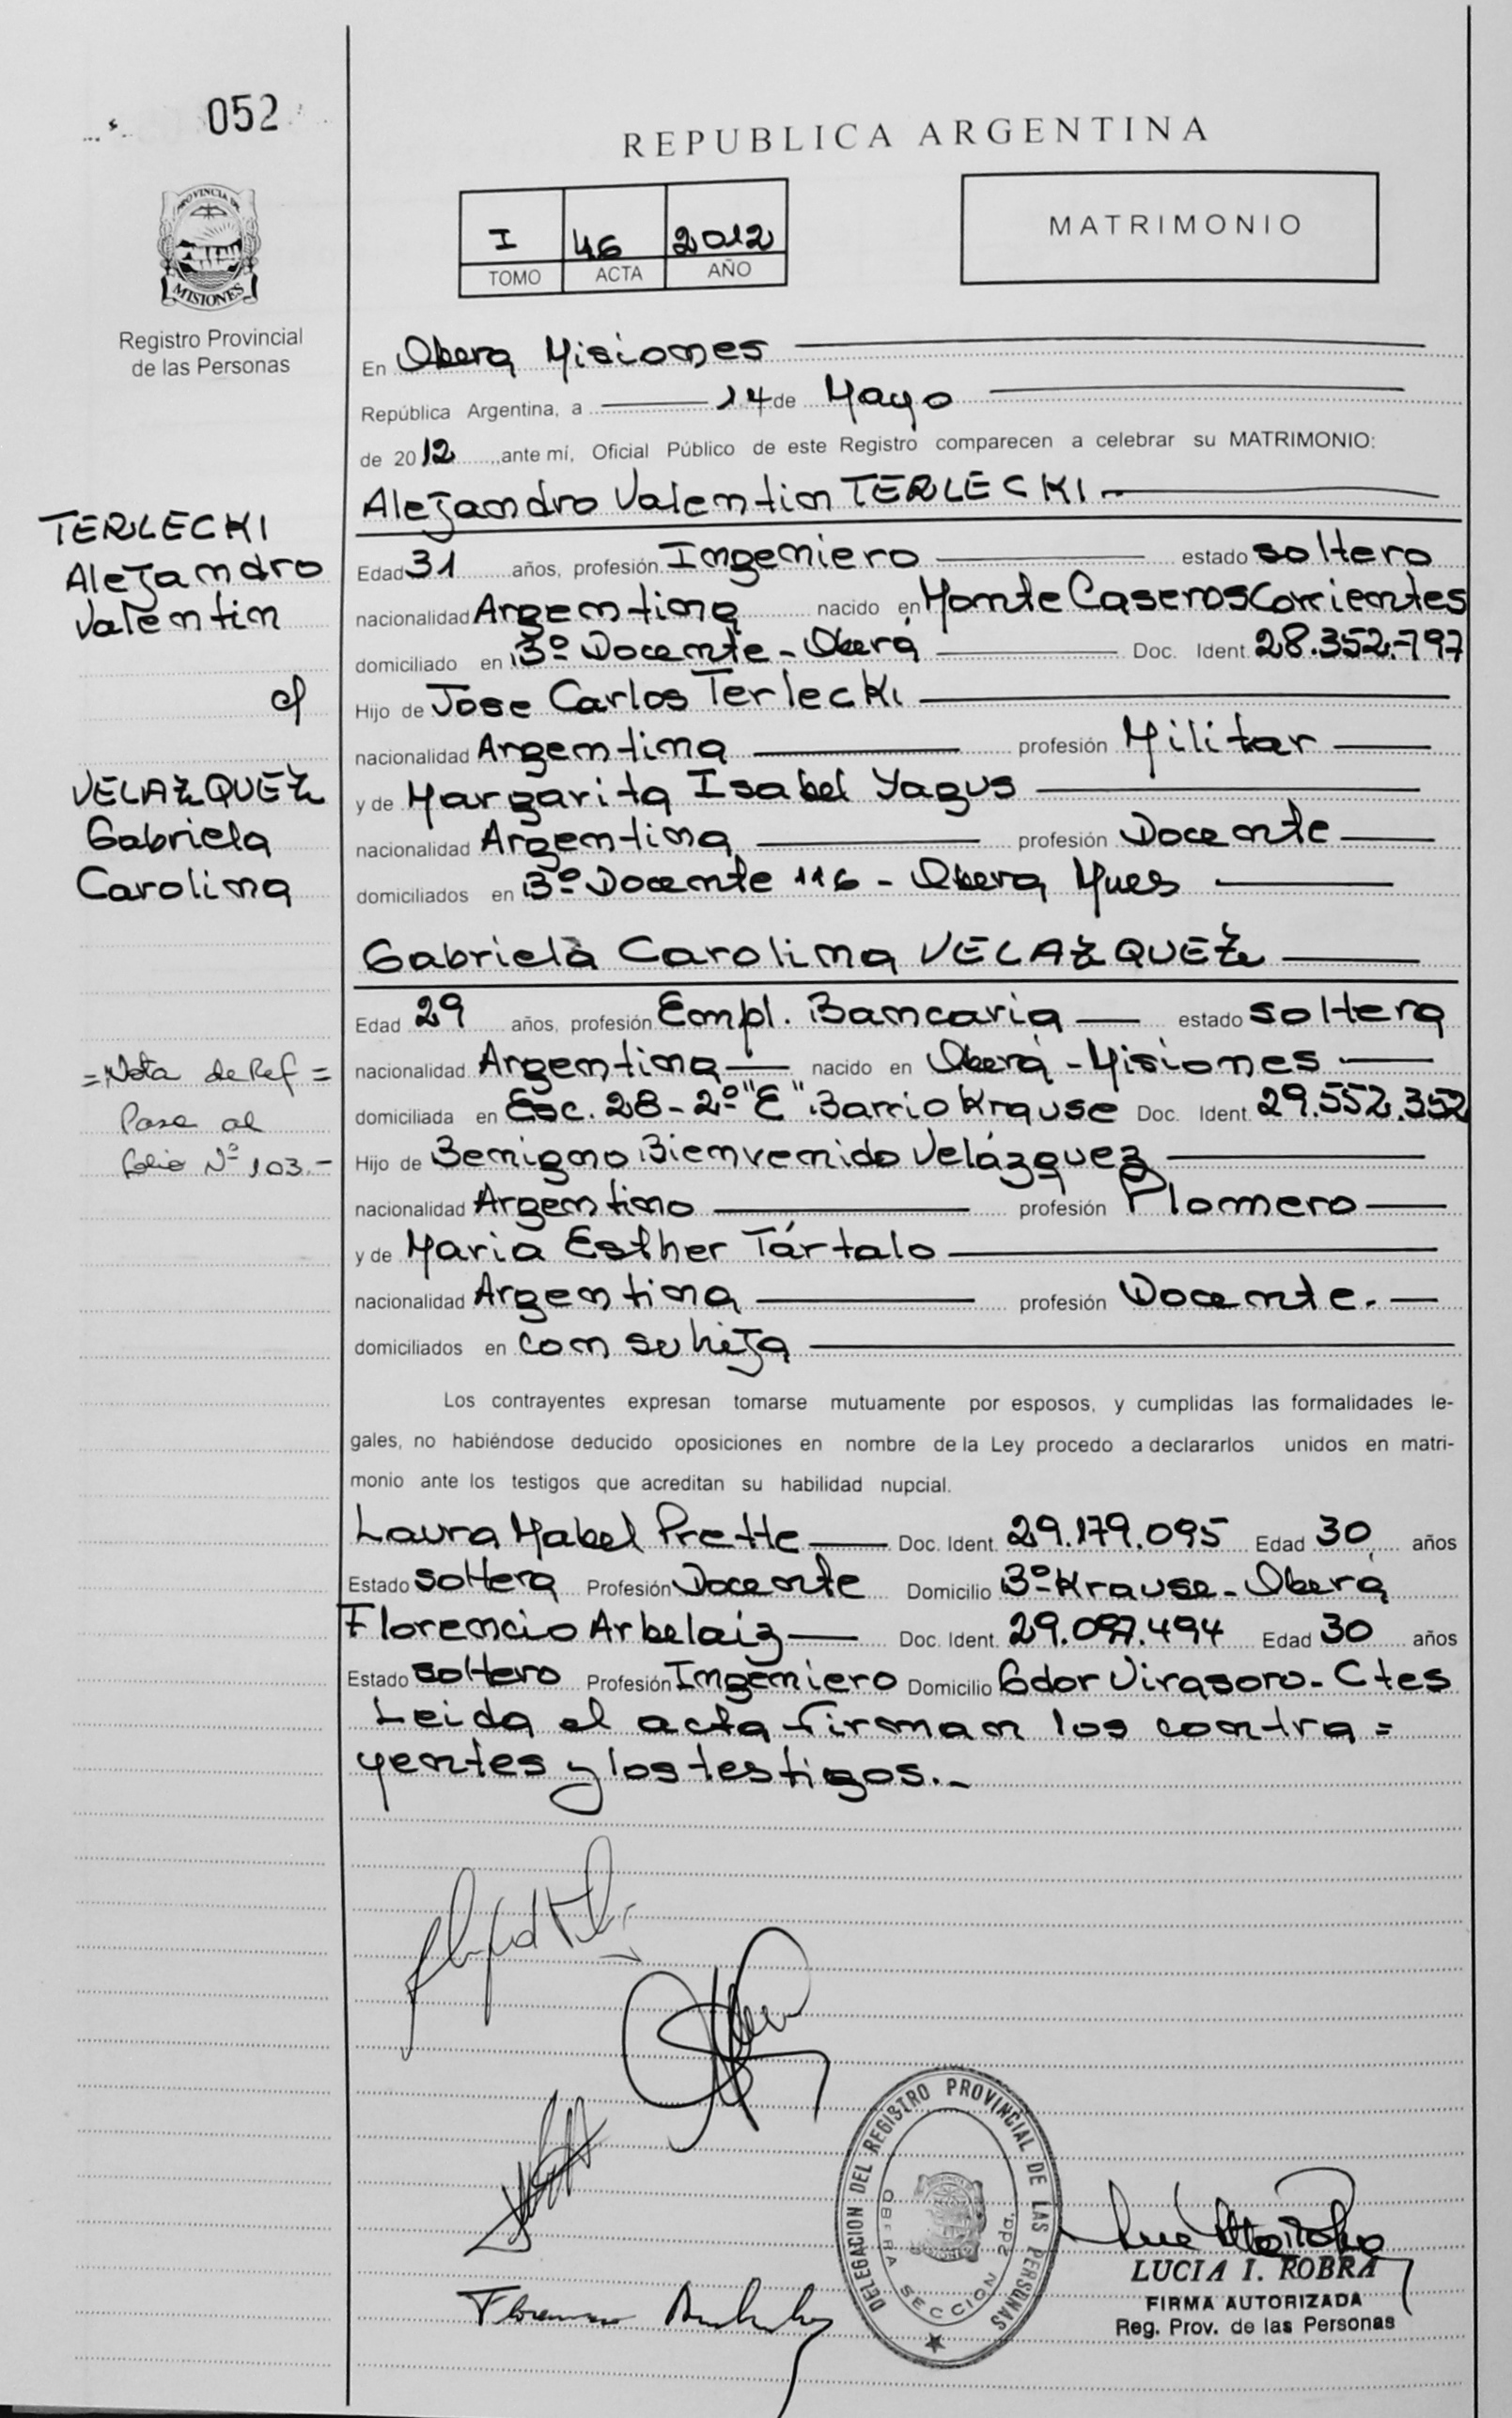 052
REPUBLICA ARGENTINA
PROVINCIA DE
MISIONES
Registro Provincial
de las Personas
I 46 2012
TOMO ACTA AÑO
MATRIMONIO
En Obera Misiones
República Argentina, a 14 de Mayo
de 2012, ante mi, Oficial Público de este Registro comparecen a celebrar su MATRIMONIO:
Alejandro Valentin TERLECKI.-
TERLECKI
Alejandro
Valentin
c/
VELAZQUEZ
Gabriela
Carolina
Edad 31 años, profesión Ingeniero estado soltero
nacionalidad Argentina nacido en Monte Caseros Corrientes
domiciliado en Bº Docente - Oberá Doc. Ident. 28.352.797
Hijo de Jose Carlos Terlecki
nacionalidad Argentina profesión Militar
y de Margarita Isabel Yagus
nacionalidad Argentina profesión Docente
domiciliados en Bº Docente 116 - Obera Mnes
Gabriela Carolina VELAZQUEZ
Edad 29 años, profesión Empl. Bancaria estado soltera
nacionalidad Argentina nacido en Oberá - Misiones
domiciliada en Esc. 28 - 2º "E" Barrio Krause Doc. Ident. 29.552.352
= Nota de Ref =
Pasa al
folio Nº 103.-
Hijo de Benigno Bienvenido Velázquez
nacionalidad Argentino profesión Plomero
y de Maria Esther Tártalo
nacionalidad Argentina profesión Docente.
domiciliados en con su hija
Los contrayentes expresan tomarse mutuamente por esposos, y cumplidas las formalidades le-
gales, no habiéndose deducido oposiciones en nombre de la Ley procedo a declararlos unidos en matri-
monio ante los testigos que acreditan su habilidad nupcial.
Laura Mabel Prette Doc. Ident. 29.179.095 Edad 30 años
Estado soltera Profesión Docente Domicilio Bº Krause - Oberá
Florencio Arbelaiz Doc. Ident. 29.097.494 Edad 30 años
Estado soltero Profesión Ingeniero Domicilio Gdor Virasoro - Ctes
Leida el acta firman los contra =
yentes y los testigos.-
DELEGACION DEL REGISTRO PROVINCIAL DE LAS PERSONAS
OBERA SECCION 2da.
LUCIA I. ROBRA
FIRMA AUTORIZADA
Reg. Prov. de las Personas